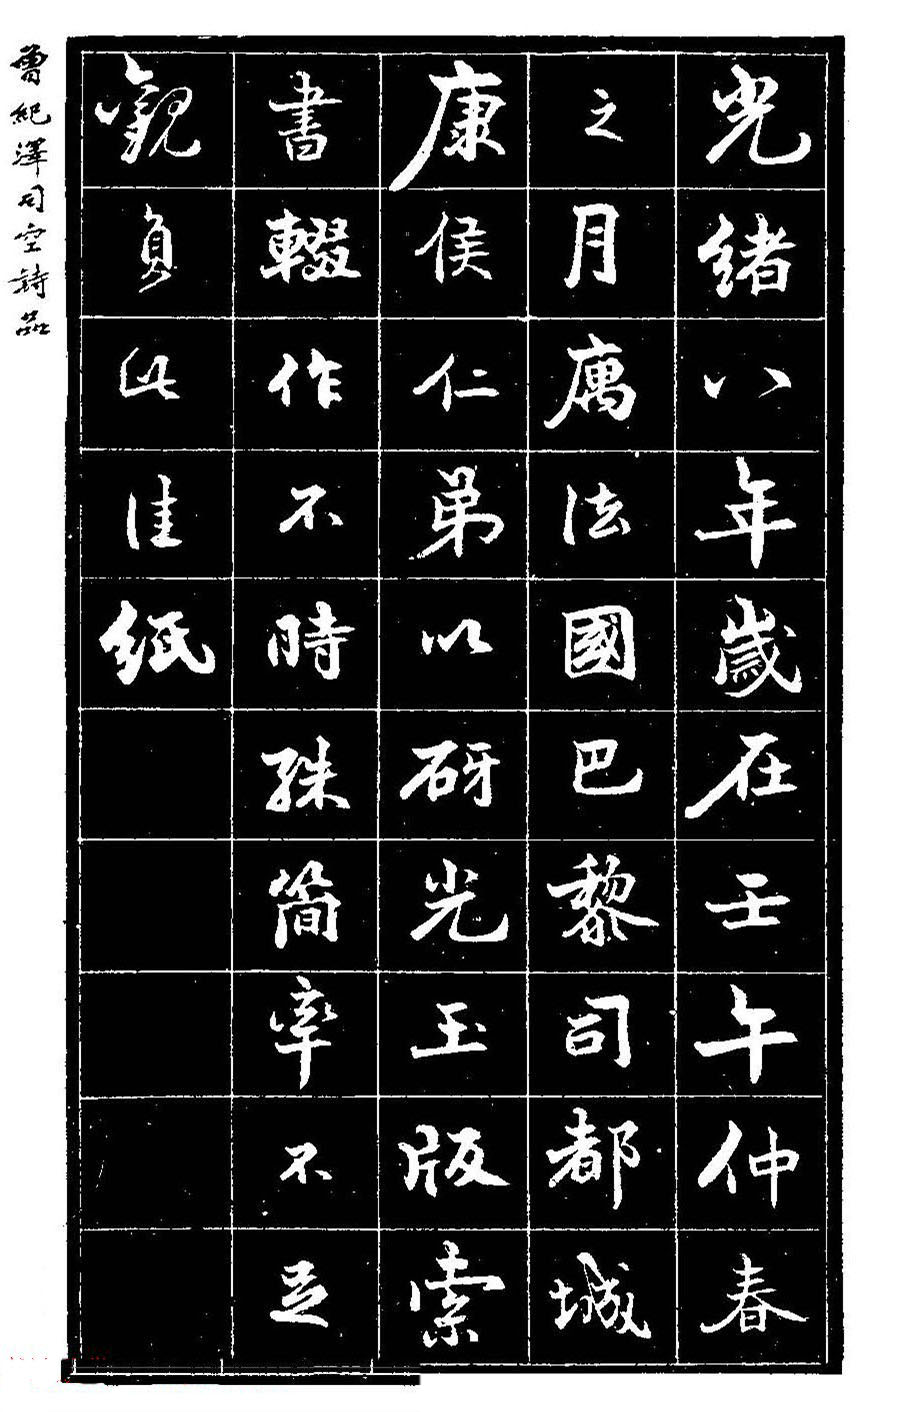 光緒八年歲在壬午仲春
之月厲法國巴黎司都城
康侯仁弟以砑光玉版索
書輟作不時殊簡率不足
觀負此佳紙
曾紀澤司空詩品